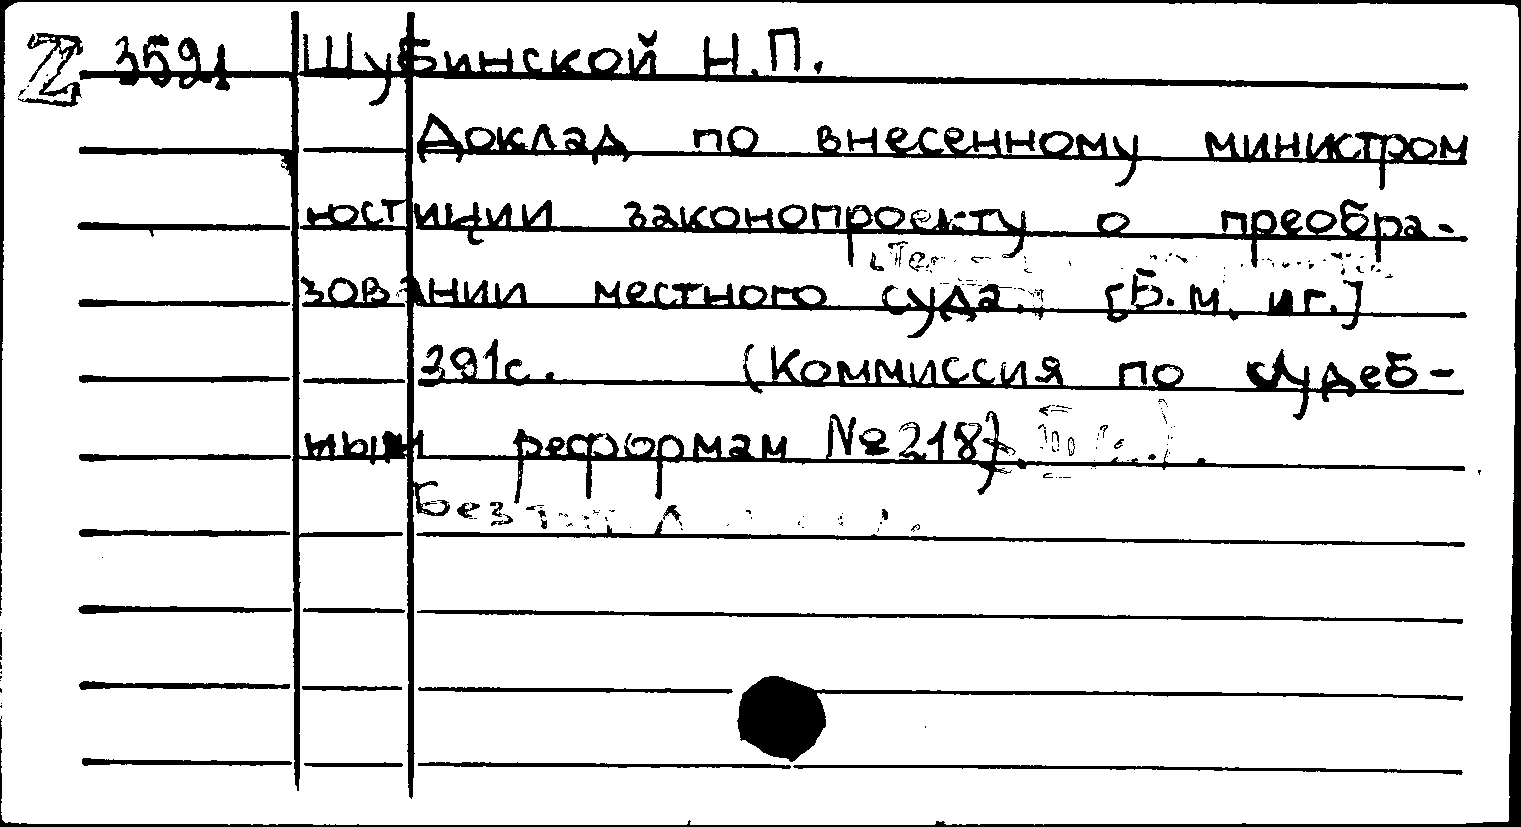 Z 3591 Шубинской Н.П.
Доклад по внесенному министром
юстиции законопроекту о преобра-
зовании местного суда. [Б.м. иг.]
391с. (Коммиссия по судеб-
ным реформам №218).
Без